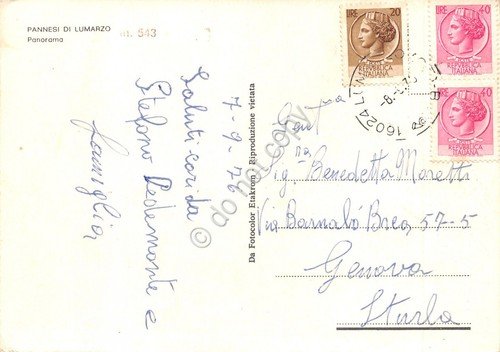 PANNESI DI LUMARZO
Panorama
mt. 543
7-9-76
Saluti da
Stefano Pedemonte e
famiglia
Da Fotocolor Etakrom - Riproduzione vietata
LIRE 20
REPUBBLICA
ITALIANA
LIRE 40
REPUBBLICA
ITALIANA
LIRE 40
REPUBBLICA
ITALIANA
16024
Gent.ma
Sig.na Benedetta Moretti
Via Barnabò Brea 57-5
Genova
Sturla
© do not copy